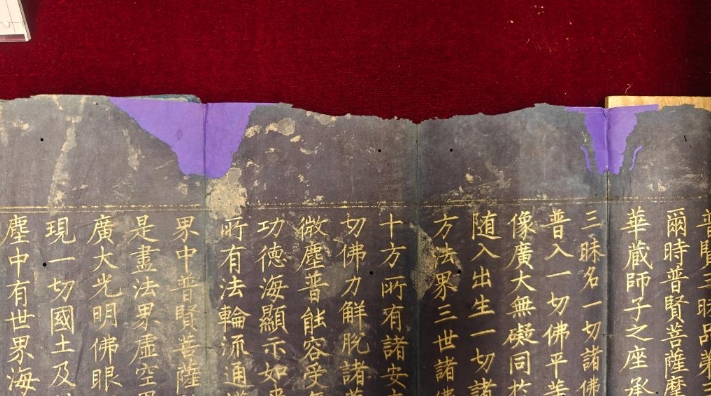 普賢三昧品第三
爾時普賢菩薩摩
華蔵師子之座承
三昧名一切諸佛
普入一切佛平等
像廣大無礙同於
随入出生一切諸
方法界三世諸佛
十方所有諸安
切佛力解脫諸菩
微塵普能容受
功德海顯示如來
所有法輪流通
界中普賢菩薩
是盡法界虛空界
廣大光明佛眼
現一切國土及
塵中有世界海